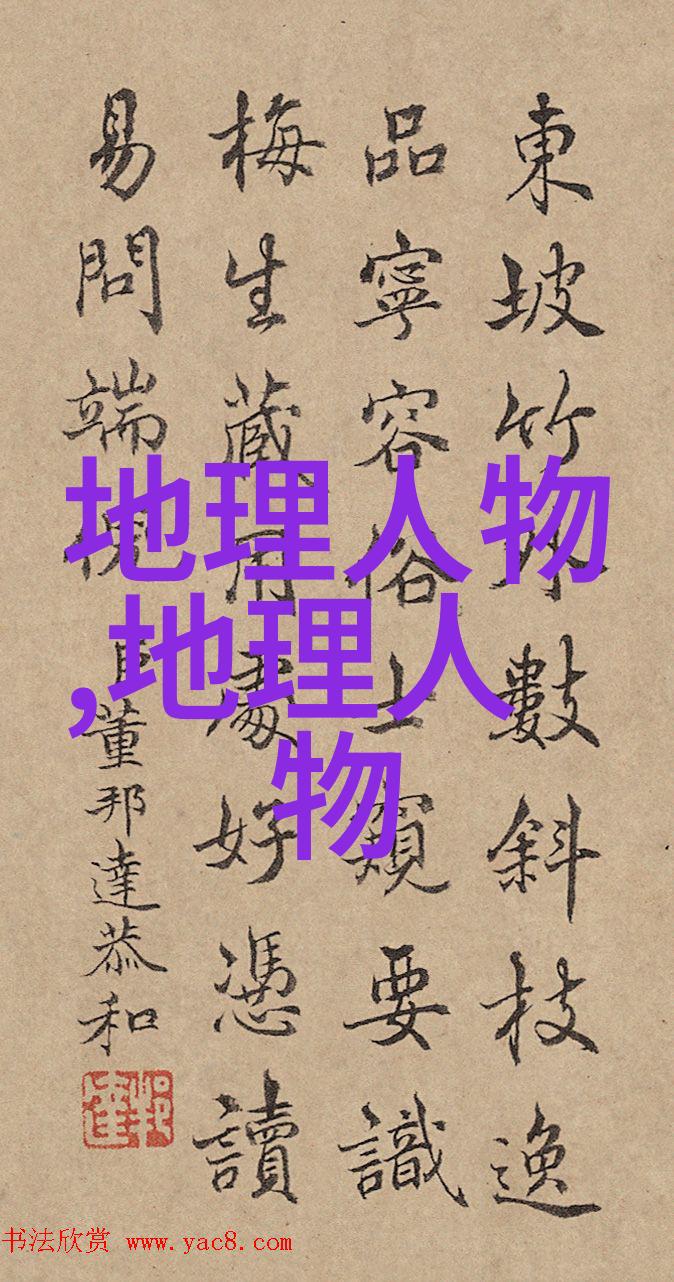 東坡竹外數斜枝逸
品寧容俗士窺要識
梅生藏用處好憑讀
易問端倪臣董邦達恭和
地理人物
,地理人
物
书法欣赏 www.yac8.com